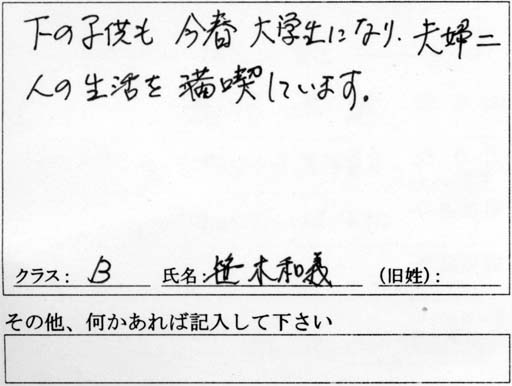 下の子供も 今春 大学生になり、夫婦二
人の生活を 満喫しています。
クラス: B 氏名: 笹木和義 (旧姓):
その他、何かあれば記入して下さい